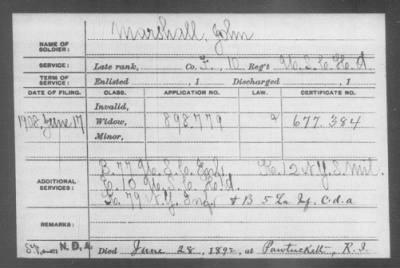 NAME OF SOLDIER: Marshall, John
SERVICE: Late rank, Co. F, 10 Reg't U.S.C.H.A.
TERM OF SERVICE: Enlisted , 1 Discharged , 1
DATE OF FILING. CLASS. APPLICATION NO. LAW. CERTIFICATE NO.
Invalid,
June 17 Widow, 898.779 677.384
Minor,
ADDITIONAL SERVICES: 12 N.Y.S. Mil.
79 N.Y. Inf. & B 5 La. Inf. C.d.a
REMARKS:
N.D.A. Died June 28, 1892, at Pawtuckett, R.I.